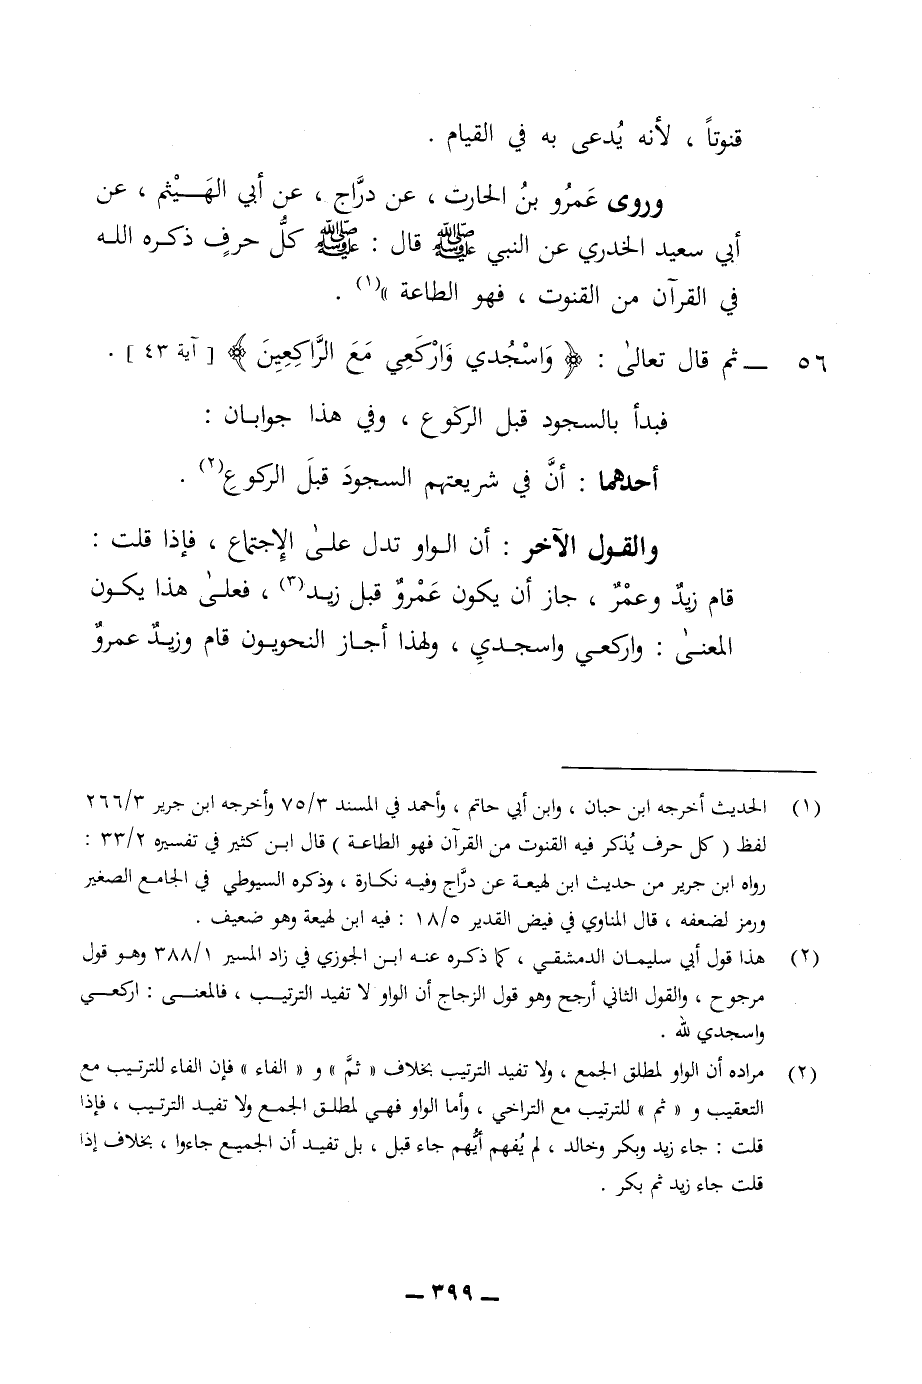 قنوتاً ، لأنه يُدعى به في القيام .
وروى عَمرُو بنُ الحارت ، عن درَّاج ، عن أبي الهَـيْثم ، عن
أبي سعيد الخدري عن النبي ﷺ قال : ﷺ كلُّ حرفٍ ذكره الله
في القرآن من القنوت ، فهو الطاعة »(١) .
٥٦ ـ ثم قال تعالىٰ : ﴿ وَاسْجُدي وَارْكَعِي مَعَ الرَّاكِعِينَ ﴾ [ آية ٤٣ ] .
فبدأ بالسجود قبل الركوع ، وفي هذا جوابان :
أحدهما : أنَّ في شريعتهم السجودَ قبلَ الركوع(٢) .
والقول الآخر : أن الواو تدل علىٰ الإجتماع ، فإذا قلت :
قام زيدٌ وعمْرٌ ، جاز أن يكون عَمْروٌ قبل زيد(٣) ، فعلىٰ هذا يكون
المعنىٰ : واركعي واسجدي ، ولهذا أجاز النحويون قام وزيدٌ عمروٌ
(١) الحديث أخرجه ابن حبان ، وابن أبي حاتم ، وأحمد في المسند ٧٥/٣ وأخرجه ابن جرير ٢٦٦/٣
لفظ ( كل حرف يُذكر فيه القنوت من القرآن فهو الطاعة ) قال ابن كثير في تفسيره ٣٣/٢ :
رواه ابن جرير من حديث ابن لهيعة عن درَّاج وفيه نكارة ، وذكره السيوطي في الجامع الصغير
ورمز لضعفه ، قال المناوي في فيض القدير ١٨/٥ : فيه ابن لهيعة وهو ضعيف .
(٢) هذا قول أبي سليمان الدمشقي ، كما ذكره عنه ابن الجوزي في زاد المسير ٣٨٨/١ وهو قول
مرجوح ، والقول الثاني أرجح وهو قول الزجاج أن الواو لا تفيد الترتيب ، فالمعنى : اركعي
واسجدي لله .
(٢) مراده أن الواو لمطلق الجمع ، ولا تفيد الترتيب بخلاف « ثمَّ » و « الفاء » فإن الفاء للترتيب مع
التعقيب و « ثم » للترتيب مع التراخي ، وأما الواو فهي لمطلق الجمع ولا تفيد الترتيب ، فإذا
قلت : جاء زيد وبكر وخالد ، لم يُفهم أيُّهم جاء قبل ، بل تفيد أن الجميع جاءوا ، بخلاف إذا
قلت جاء زيد ثم بكر .
ـ ٣٩٩ ـ